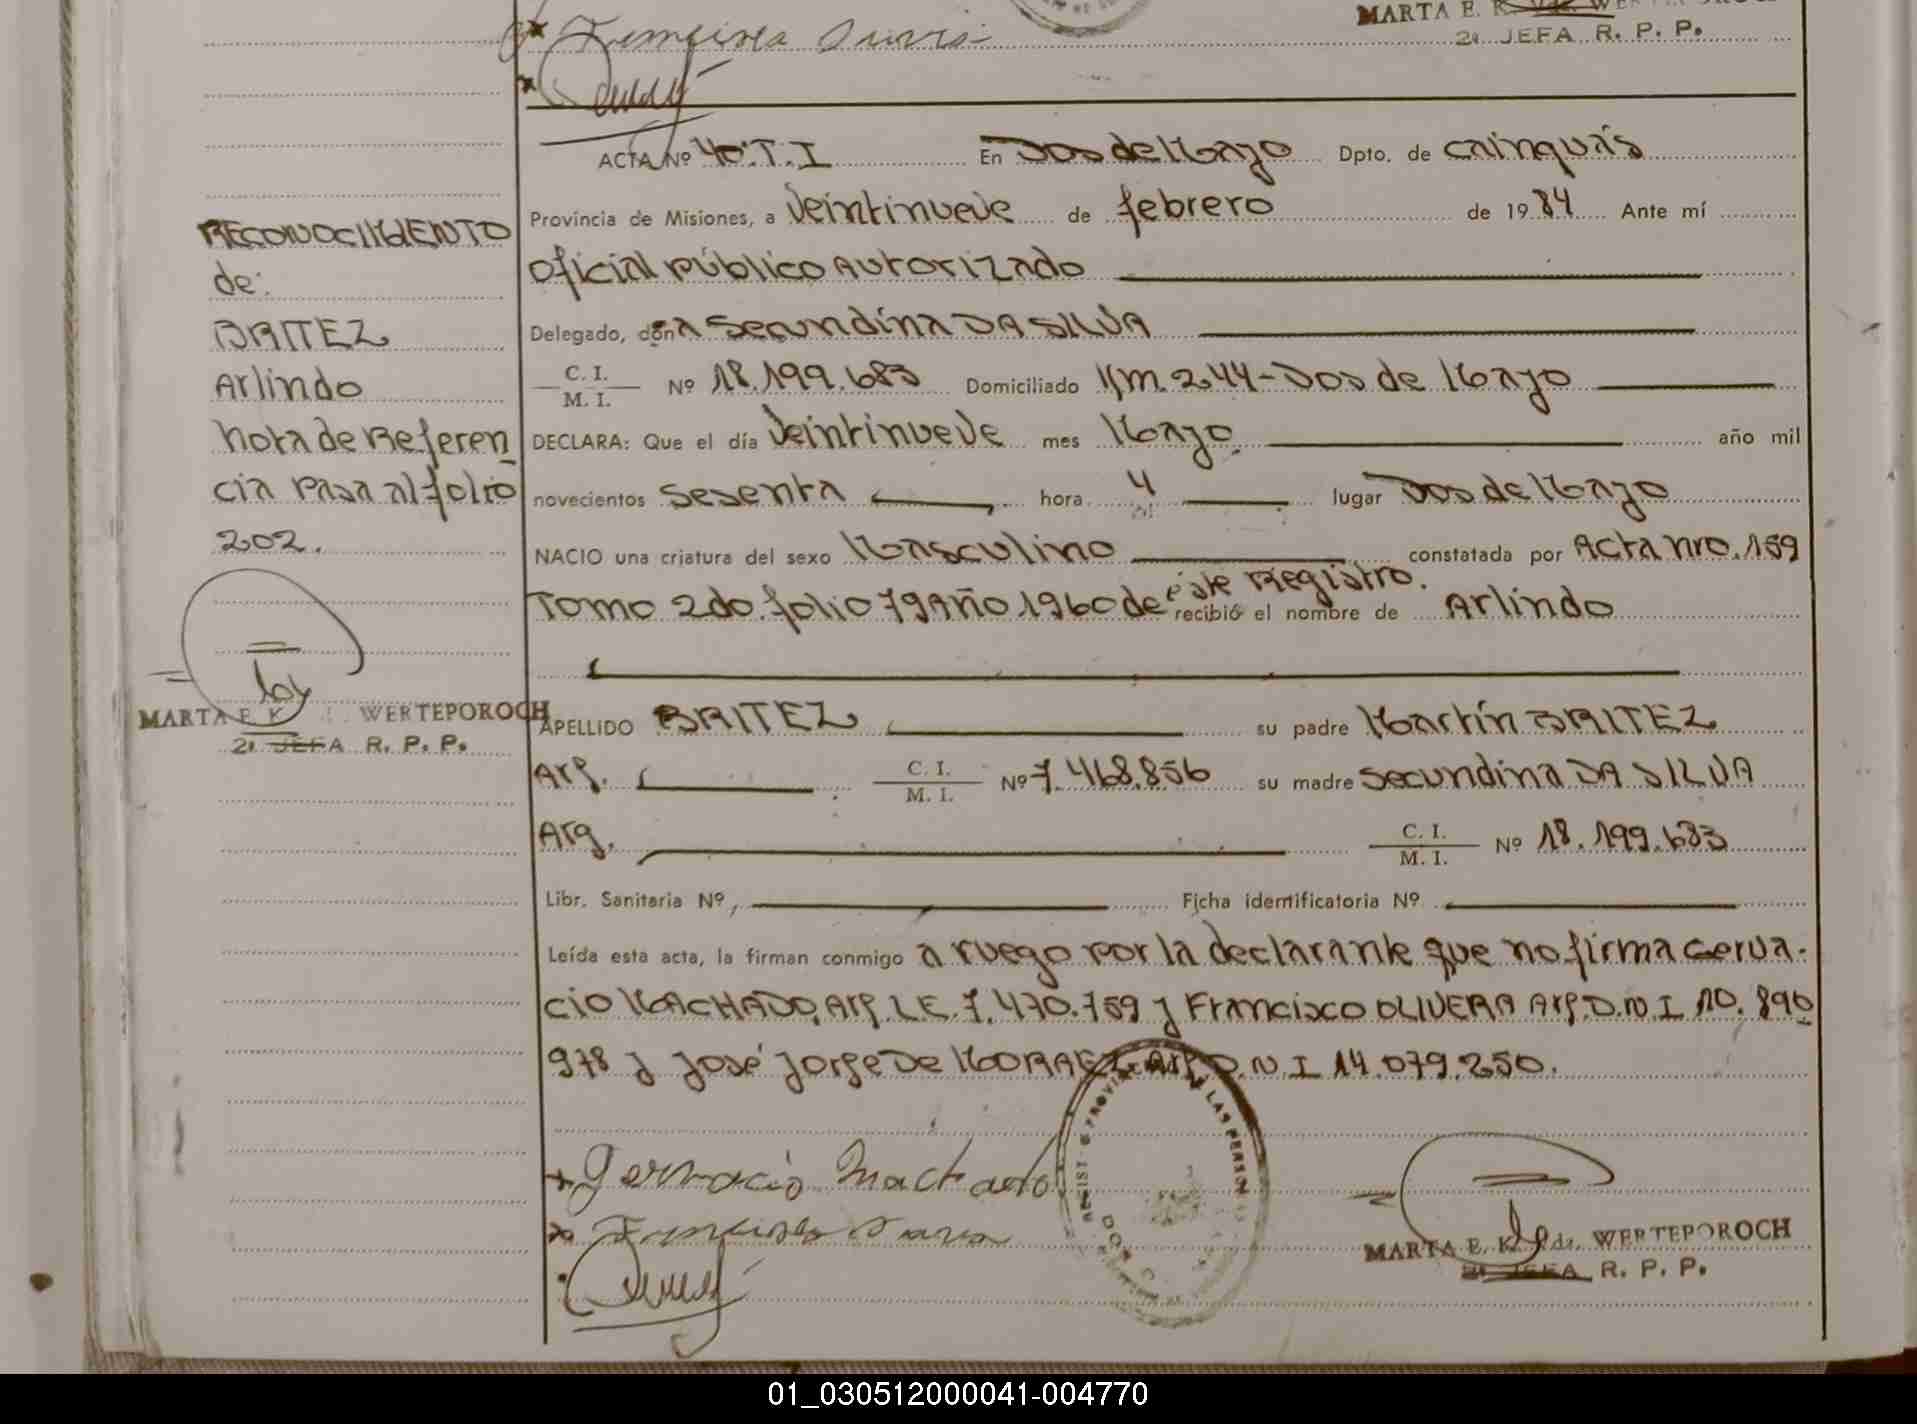 MARTA E.
2ª JEFA R. P. P.
ACTA Nº 40.T.I En Dos de Mayo Dpto. de cainguás
Provincia de Misiones, a Veintinueve de febrero de 1984 Ante mí
Oficial público Autorizado
Delegado, doña Secundina DA SILVA
C. I. / M. I. Nº 18.199.683 Domiciliado Km. 244-Dos de Mayo
DECLARA: Que el día Veintinueve mes Mayo año mil
novecientos Sesenta hora 4 lugar Dos de Mayo
NACIO una criatura del sexo Masculino constatada por Acta nro. 159
Tomo 2do. folio 79 Año 1960 de este Registro. recibió el nombre de Arlindo
APELLIDO BRITEZ su padre Martín BRITEZ
Arg. C. I. / M. I. Nº 7.468.856 su madre Secundina DA SILVA
Arg. C. I. / M. I. Nº 18.199.683
Libr. Sanitaria Nº Ficha identificatoria Nº
Leída esta acta, la firman conmigo a ruego por la declarante que no firma Gerva-
cio MACHADO, Arg. L.E. 7.470.759 y Francisco OLIVERA Arg. D.N.I 10.890
978 y José Jorge De MORAEZ Arg. D.N.I 14.079.250.
Gervacio Machado
MARTA E. K. de. WERTEPOROCH
2ª JEFA R. P. P.
RECONOCIMIENTO
de:
BRITEZ
Arlindo
nota de Referen
cia pasa al folio
202.
MARTA E. K. WERTEPOROCH
2ª JEFA R. P. P.
01_030512000041-004770